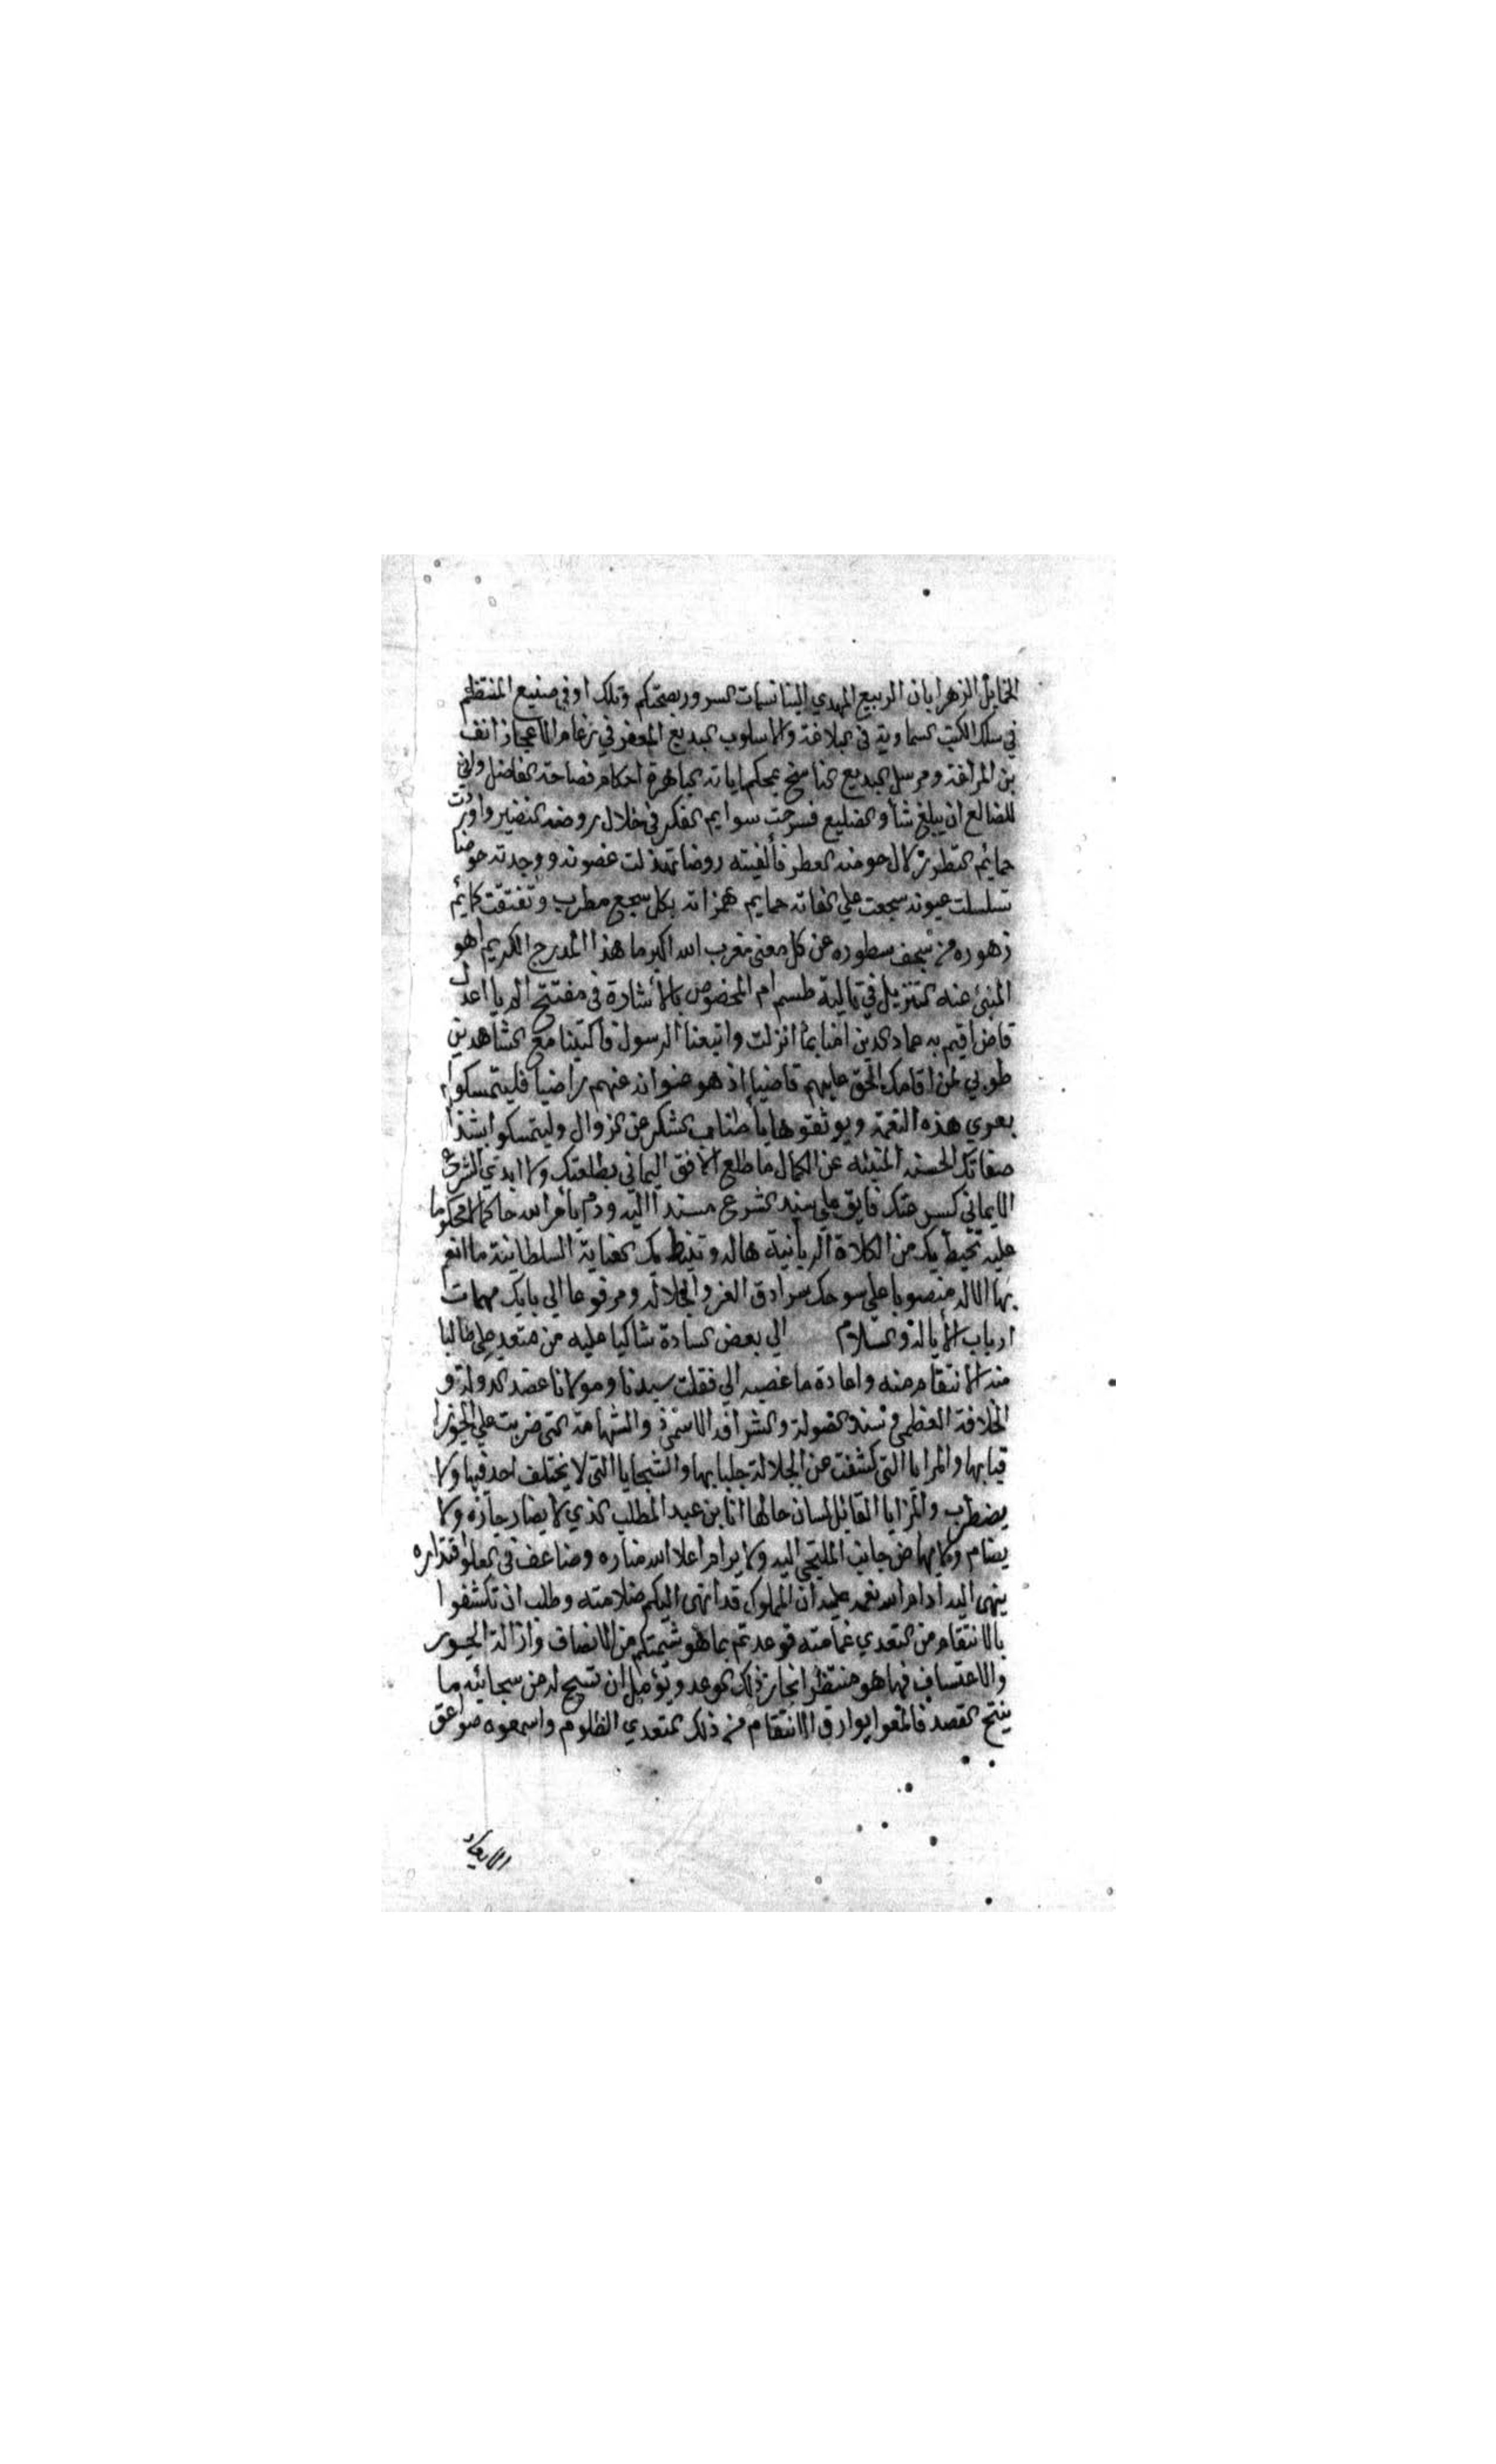 الخمايل الزهرا بان الربيع المهدي الينا نسمات السرور بصحتكم وتلك اوفى صنيع المنتظم
في سلك الكتب السماوية في البلاغة والاسلوب البديع المعفر في رغام الاعجاز انف
بن المراغة ومرسل البديع الناسخ بمحكم اياته الباهرة احكام فصاحة الفاضل واني
للضالع ان يبلغ شأو الضليع فسرحت سوايم الفكر في خلال روضه النضير واوردت
حمايم النظر زلال حوضه العطر فألفيته روضا تهدلت غصونه ووجدته حوضا
تسلسلت عيونه سجعت على الفاته حمايم همزاته بكل سجع مطرب وتفتقت كمايم
زهوره من سجف سطوره عن كل معنى مغرب الله اكبر ما هذا المدرج الكريم اهو
المنبئ عنه التنزيل في تالية طسم ام المخصوص بالاشارة في مفتتح الم يا اعدل
قاض اقيم به عماد الدين امنا بما انزلت واتبعنا الرسول فاكتبنا مع الشاهدين
طوبي لمن اقامك الحق عليهم قاضيا اذ هو عنوان عنهم راضيا فليتمسكوا
بعري هذه النعمة ويوثقوها بأطناب الشكر عن الزوال وليتمسكوا بشذا
صفاتك الحسنه المنبئه عن الكمال ما طلع الافق اليماني بطلعتك ولا ابدي الشرع
الايماني كسرعتك فابق على سند الشرع مستندا اليه ودم بأمر الله حاكما لا محكوما
عليه تحيط بك من الكلاة الربانية هاله وتنيط بك العناية السلطانية ما انعم
بها الاله منصوبا على سوحك سرادق العز والجلاله ومرفوعا الى بابك مهمات
ارباب الايالة والسلام الي بعض السادة شاكيا عليه من متعد علي طالبا
منه الانتقام منه واعادة ما غصبه الي فقلت سيدنا ومولانا عضد الدولة و
الخلافة العظمى وسند الصولة والشرافه الاسمى ذو الشهامة التي ضربت على الجوزا
قبابها والمرايا التي كشفت عن الجلالة جلبابها والسجايا التي لا يختلف احد فيها ولا
يضطرب والمزايا القائل لسان حالها انا بن عبد المطلب الذي لا يضار جاره ولا
يضام ولا يهاض جانب الملتجي اليه ولا يرام اعلا الله مناره وضاعف في العلو اقتداره
ينهى اليه ادام الله نعمه عليه ان المملوك قد انهى اليكم ضلامته وطلب ان تكشفوا
بالانتقام من التعدي غمامته فوعدتم بما هو شيمتكم من الانصاف وازالة الجور
والاعتساف فها هو منتظر انجاز ذلك الوعد ويؤمل ان تسبح له من سحائبه ما
ينتج القصد فالمقوا بوارق الانتقام من ذلك المتعدي الظلوم واسمعوه صواعق
الايعاد